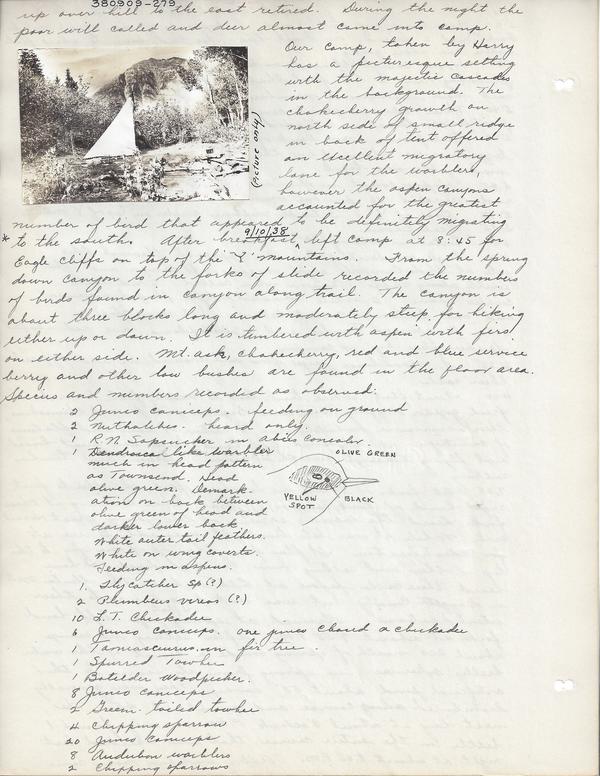 380909-279
up over hill to the east retired. During the night the
poor will called and deer almost came into camp.
Our camp, taken by Harry
has a picturesque setting
with the majestic cascades
in the background. The
chokecherry growth on
north side of small ridge
in back of tent offered
an excellent migratory
lane for the warblers,
however the aspen canyons
accounted for the greatest
(Picture only)
number of bird that appeared to be definitely migrating
* to the south. After breakfast, 9/10/38 left camp at 8:45 for
Eagle Cliffs on top of the "Y" mountains. From the spring
down canyon to the forks of slide recorded the numbers
of birds found in canyon along trail. The canyon is
about three blocks long and moderately steep for hiking
either up or down. It is timbered with aspen with firs
on either side. Mt. ash, chokecherry, red and blue service
berry and other low bushes are found in the floor area.
Species and numbers recorded as observed:
2 Junco caniceps. feeding on ground
2 Nuthatches. heard only.
1 R.N. Sapsucker in abies concolor
1 Dendroica like warbler
much in head pattern
as Townsend. Head
olive green. Demark-
ation on back between
olive green of head and
darker lower back
White outer tail feathers.
White on wing coverts.
Feeding in aspens.
OLIVE GREEN
YELLOW SPOT
BLACK
1. Flycatcher sp (?)
2 Plumbeus vireos (?)
10 L.T. Chickadee
6 Junco caniceps. one junco chased a chickadee
1 Tamiasciurus in fir tree.
1 Spurred Towhee
1 Batelder Woodpecker.
8 Junco caniceps
2 Green-tailed towhee
4 Chipping sparrow
20 Junco caniceps
8 Audubon warblers
2 Chipping sparrows